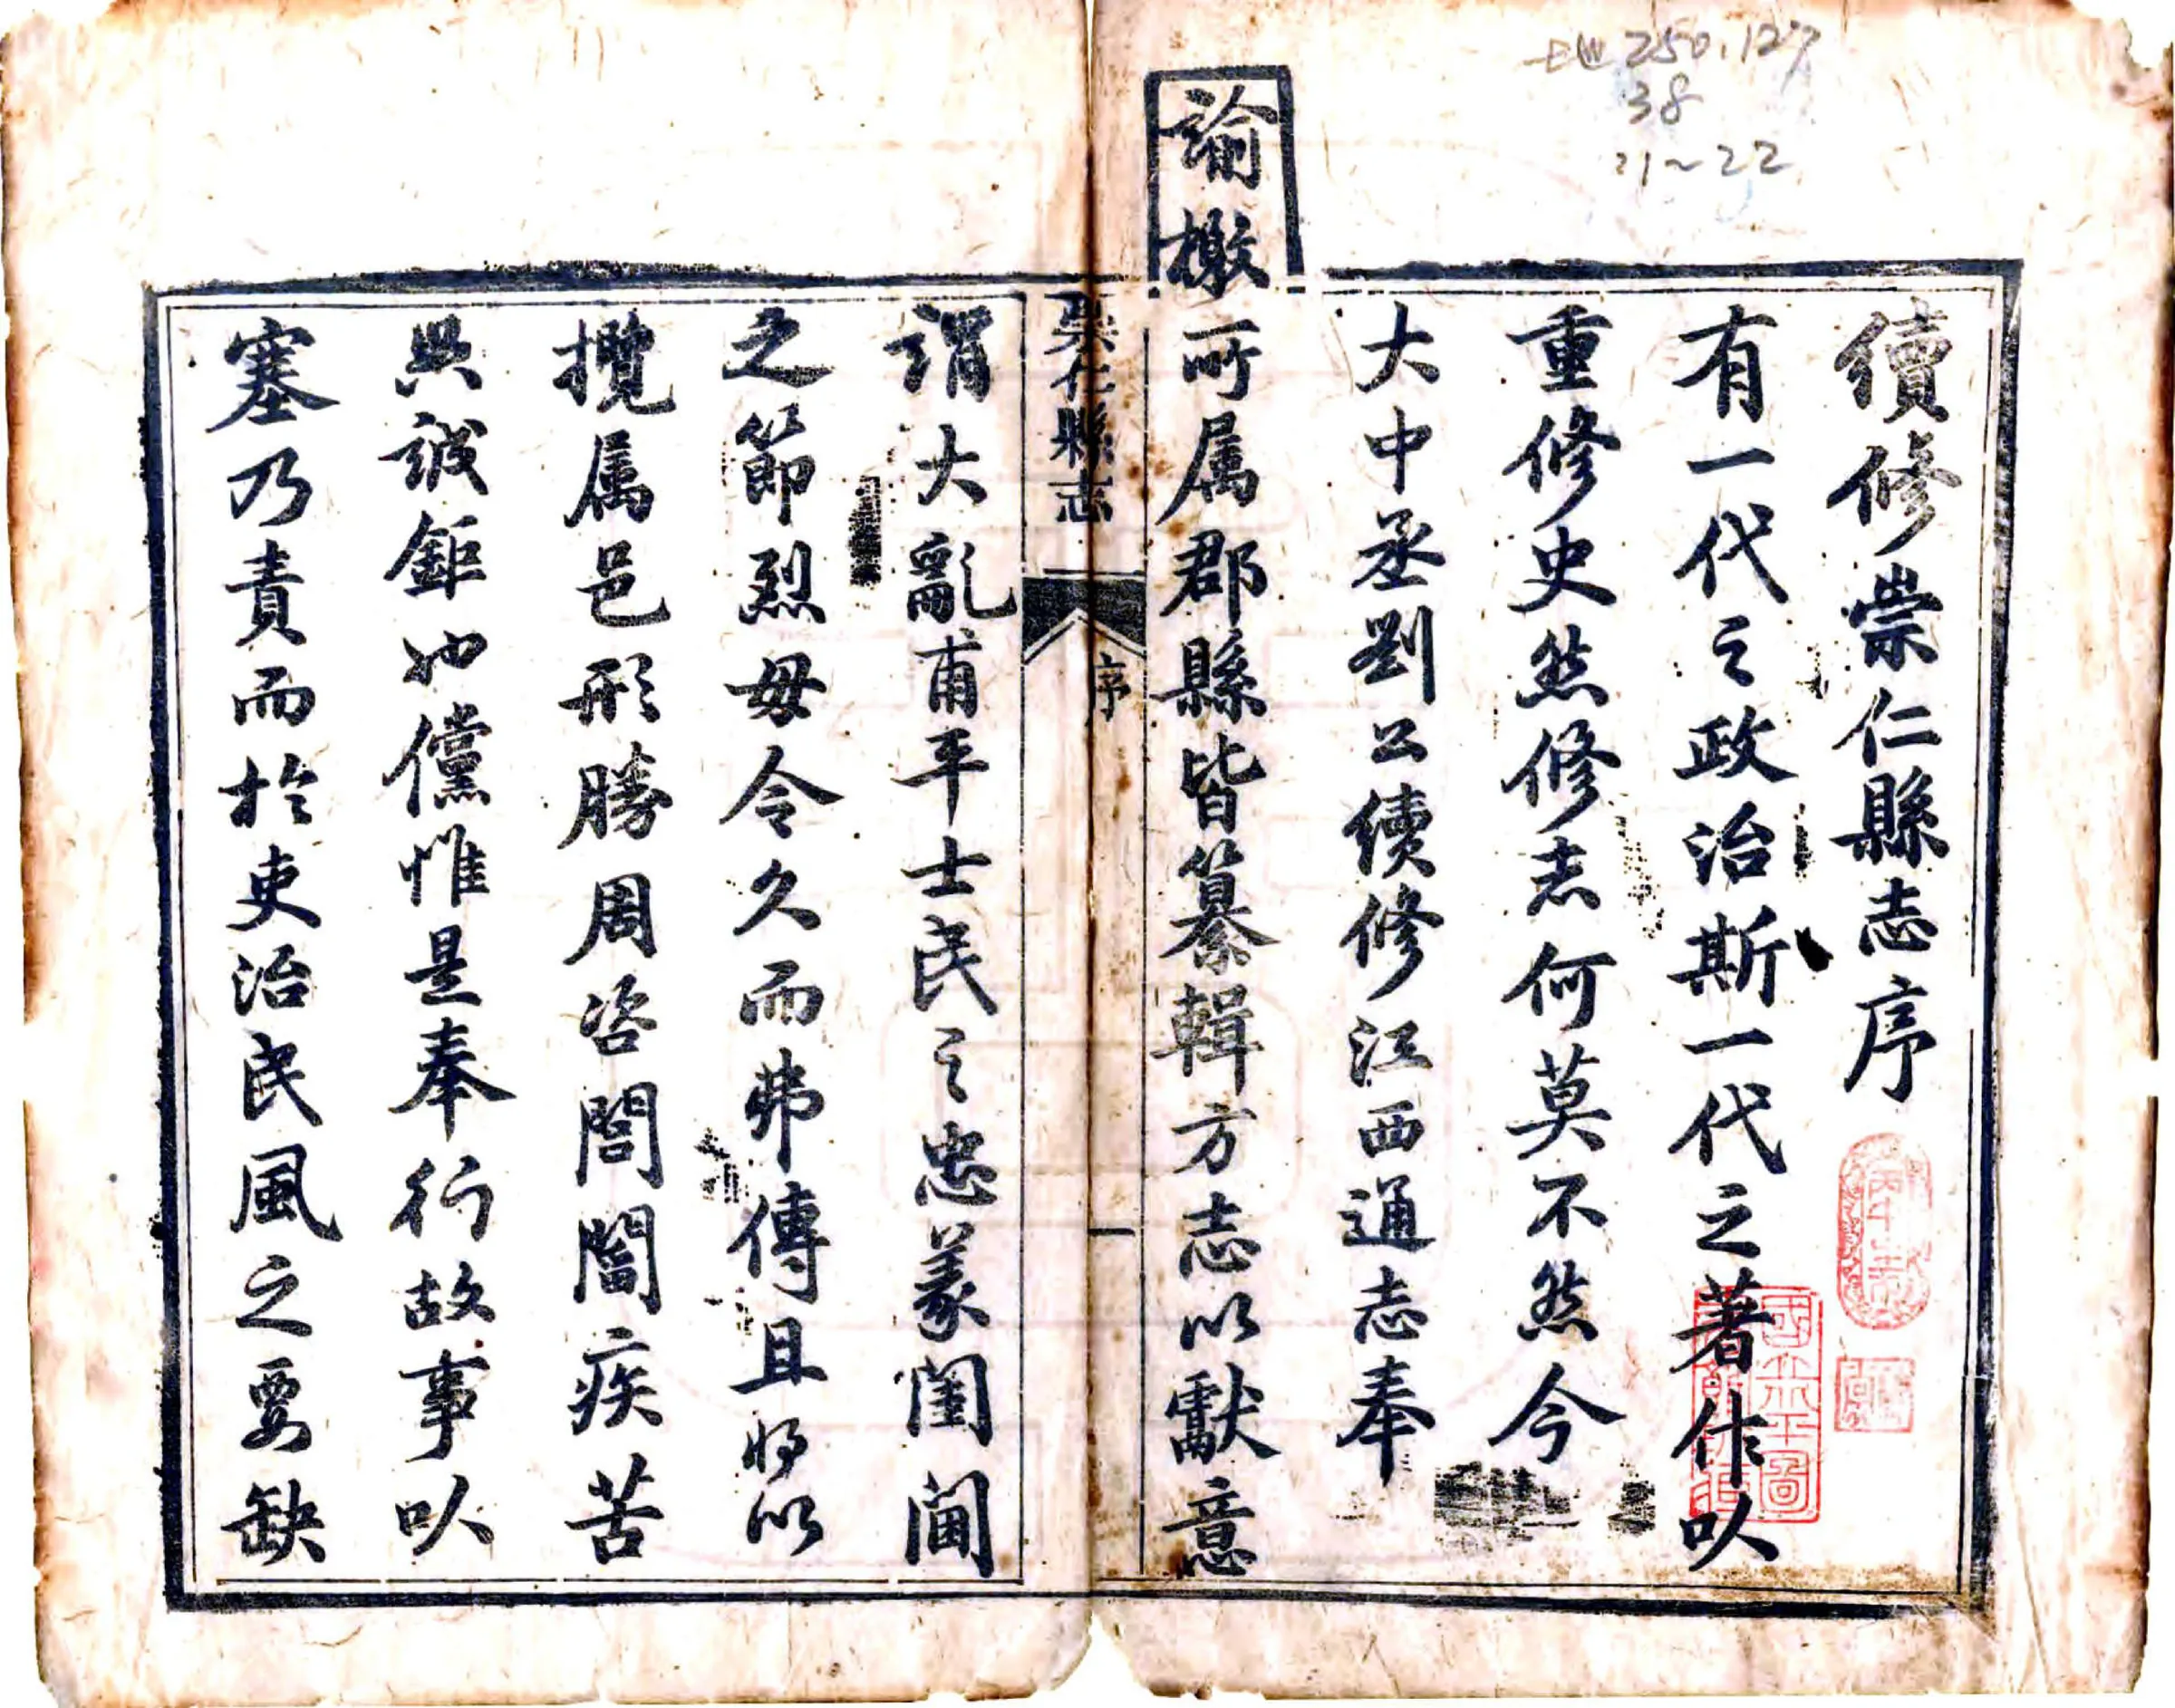 地250.127
38
21~22
續修崇仁縣志序
有一代之政治斯一代之著作㕥
重修史然修志何莫不然今
大中丞劉公續修江西通志奉
諭檄所属郡縣皆纂輯方志以獻意
崇仁縣志 序 一
謂大亂甫平士民之忠義閨閫
之節烈毋令久而弗傳且将以
攬属邑形勝周咨閭閻疾苦
典誠鉅也儻惟是奉行故事㕥
塞乃責而於吏治民風之要缺